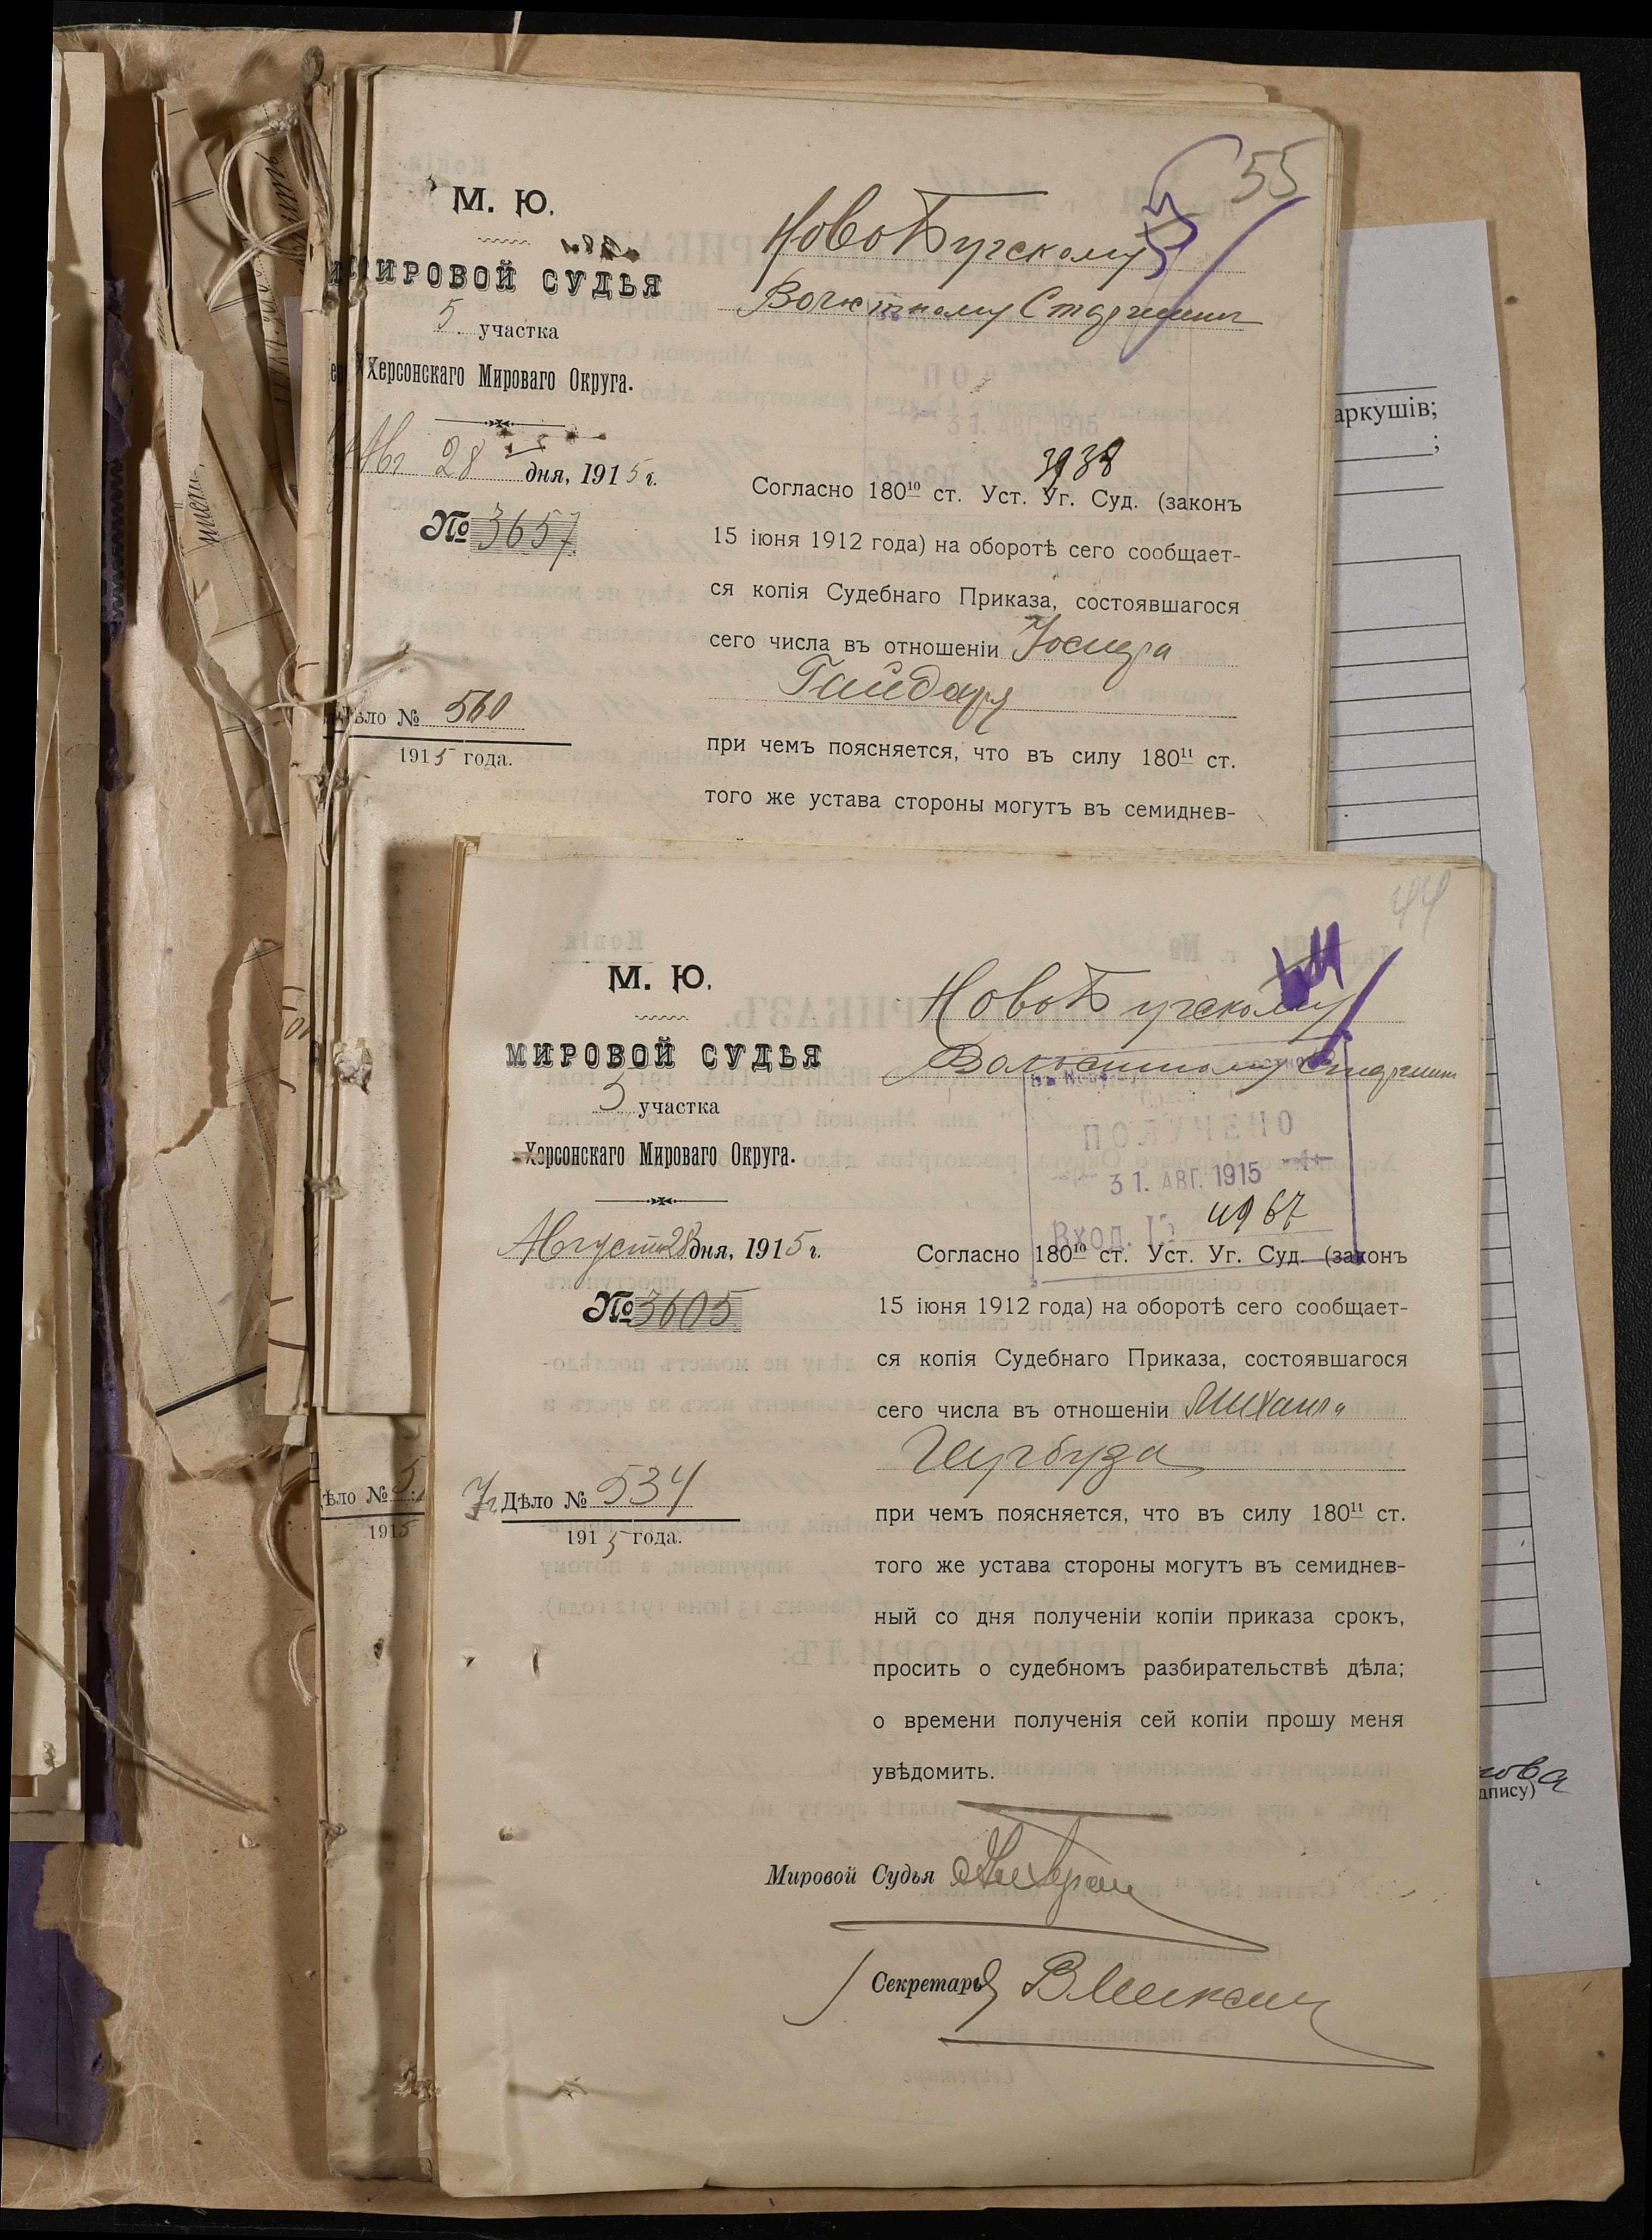 55
М. Ю.
МИРОВОЙ СУДЬЯ
5 участка
Херсонскаго Мироваго Округа.
Авг 28 дня, 1915 г.
№ 3657
Дѣло № 560
1915 года.
НовоБугскому
Волостному Старшинѣ
31. АВГ. 1915
3938
Согласно 180¹⁰ ст. Уст. Уг. Суд. (законъ
15 іюня 1912 года) на оборотѣ сего сообщает-
ся копія Судебнаго Приказа, состоявшагося
сего числа въ отношеніи Іосифа
Гайдаря
при чемъ поясняется, что въ силу 180¹¹ ст.
того же устава стороны могутъ въ семиднев-
аркушів;
;
44
М. Ю.
МИРОВОЙ СУДЬЯ
5 участка
Херсонскаго Мироваго Округа.
Августа 28 дня, 1915 г.
№ 3605
Дѣло № 534
1915 года.
НовоБугскому
Волостному Старшинѣ
ПОЛУЧЕНО
31. АВГ. 1915
Вход.
Согласно 180¹⁰ ст. Уст. Уг. Суд. (законъ
15 іюня 1912 года) на оборотѣ сего сообщает-
ся копія Судебнаго Приказа, состоявшагося
сего числа въ отношеніи Михаила
при чемъ поясняется, что въ силу 180¹¹ ст.
того же устава стороны могутъ въ семиднев-
ный со дня полученіи копіи приказа срокъ,
просить о судебномъ разбирательствѣ дѣла;
о времени полученія сей копіи прошу меня
увѣдомить.
Мировой Судья
Секретарь
ѣло № 5
1915
дпису)